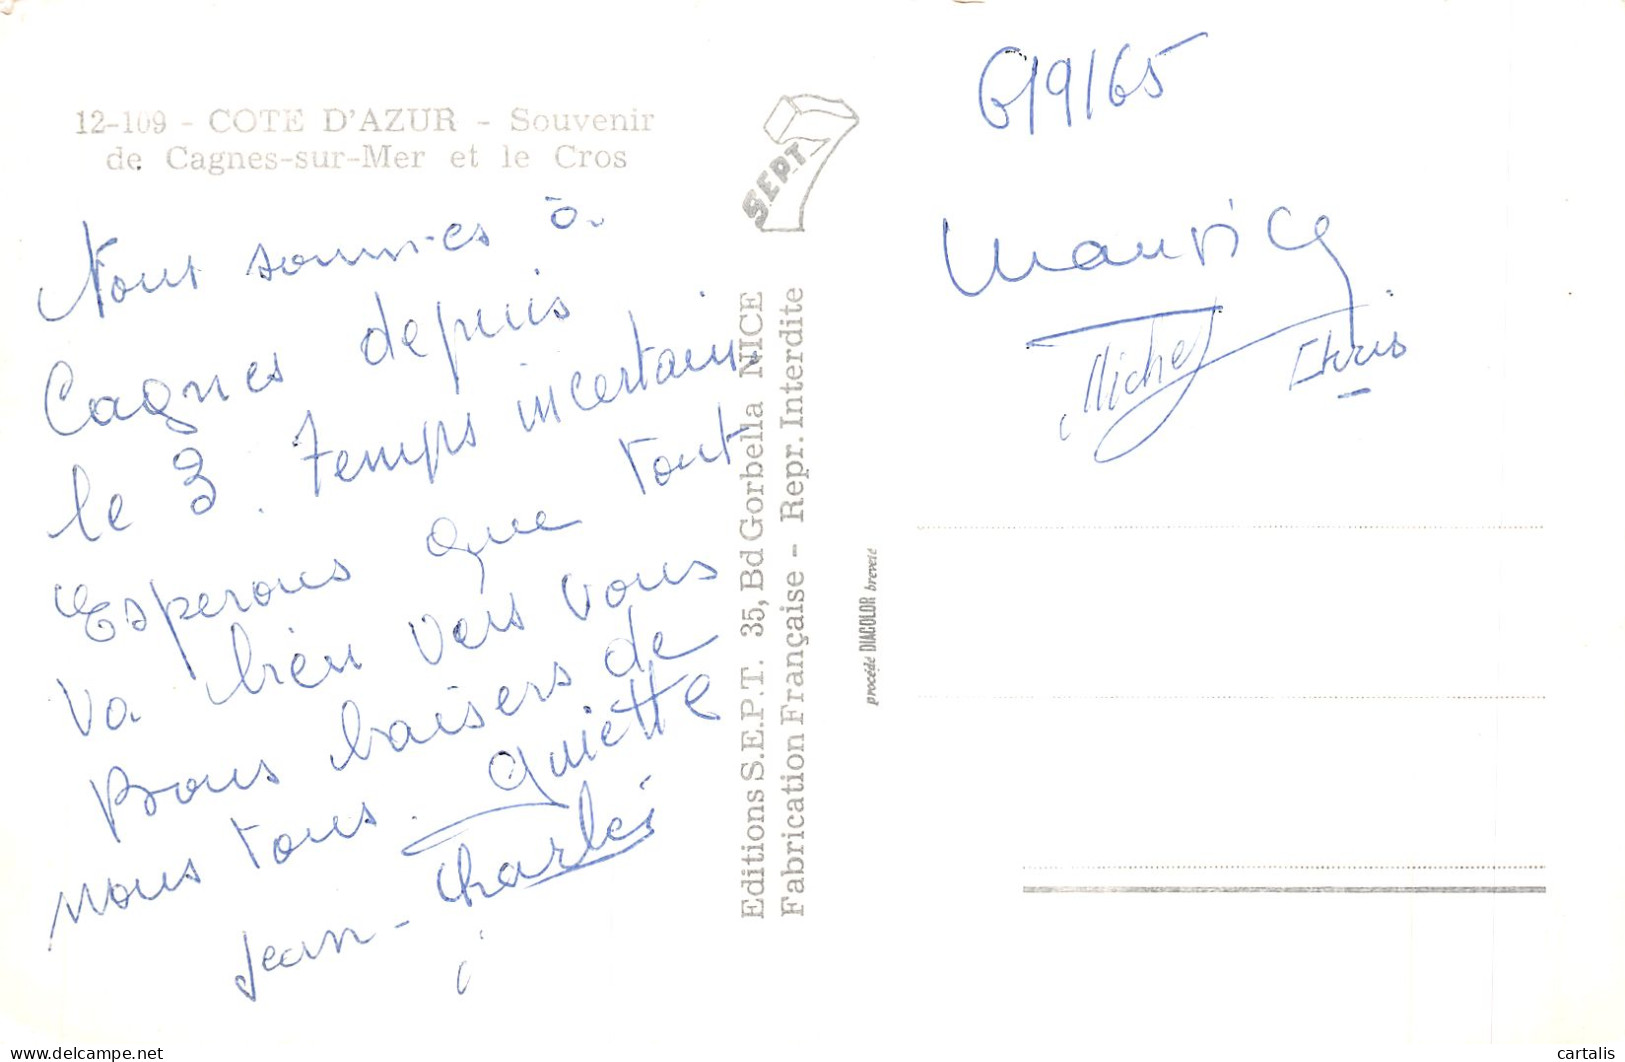 12-109 - COTE D'AZUR - Souvenir
de Cagnes-sur-Mer et le Cros
Nous sommes à
Cagnes depuis
le 3. Temps incertain
Esperons que tout
va bien vers vous
Bons baisers de
nous tous. Quiette
Jean-Charles
S.E.P.T
Editions S.E.P.T. 35, Bd Gorbella NICE
Fabrication Française - Repr. Interdite
procédé DIACOLOR breveté
6/9/65
Maurice
Michel
Chris
cartalis